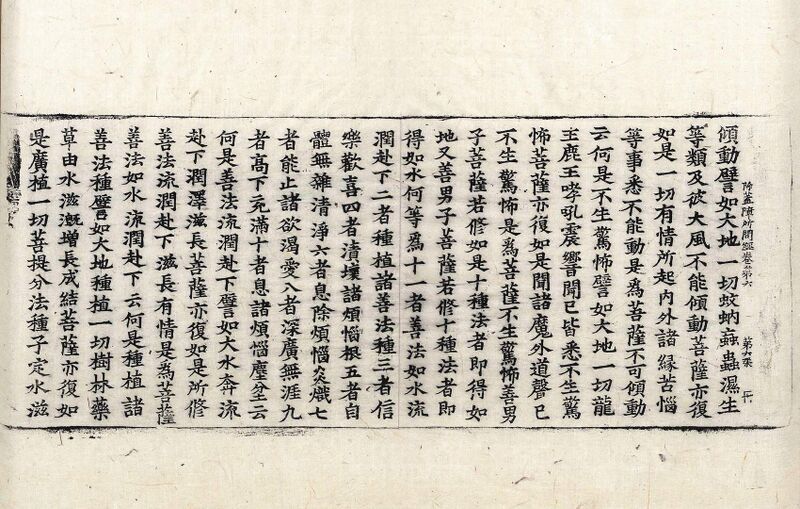 除蓋障所問經卷第六　第六張　丗
傾動譬如大地一切蚊蚋蝱蟲濕生
等類及彼大風不能傾動菩薩亦復
如是一切有情所起內外諸緣苦惱
等事悉不能動是為菩薩不可傾動
云何是不生驚怖譬如大地一切龍
王鹿王哮吼震響聞已皆悉不生驚
怖菩薩亦復如是聞諸魔外道聲已
不生驚怖是為菩薩不生驚怖善男
子菩薩若修如是十種法者即得如
地又善男子菩薩若修十種法者即
得如水何等為十一者善法如水流
潤赴下二者種植諸善法種三者信
樂歡喜四者漬壞諸煩惱根五者自
體無雜清淨六者息除煩惱炎熾七
者能止諸欲渴愛八者深廣無涯九
者高下充滿十者息諸煩惱塵坌云
何是善法流潤赴下譬如大水奔流
赴下潤澤滋長菩薩亦復如是所修
善法流潤赴下滋長有情是為菩薩
善法如水流潤赴下云何是種植諸
善法種譬如大地種植一切樹林藥
草由水滋溉增長成結菩薩亦復如
是廣植一切菩提分法種子定水滋